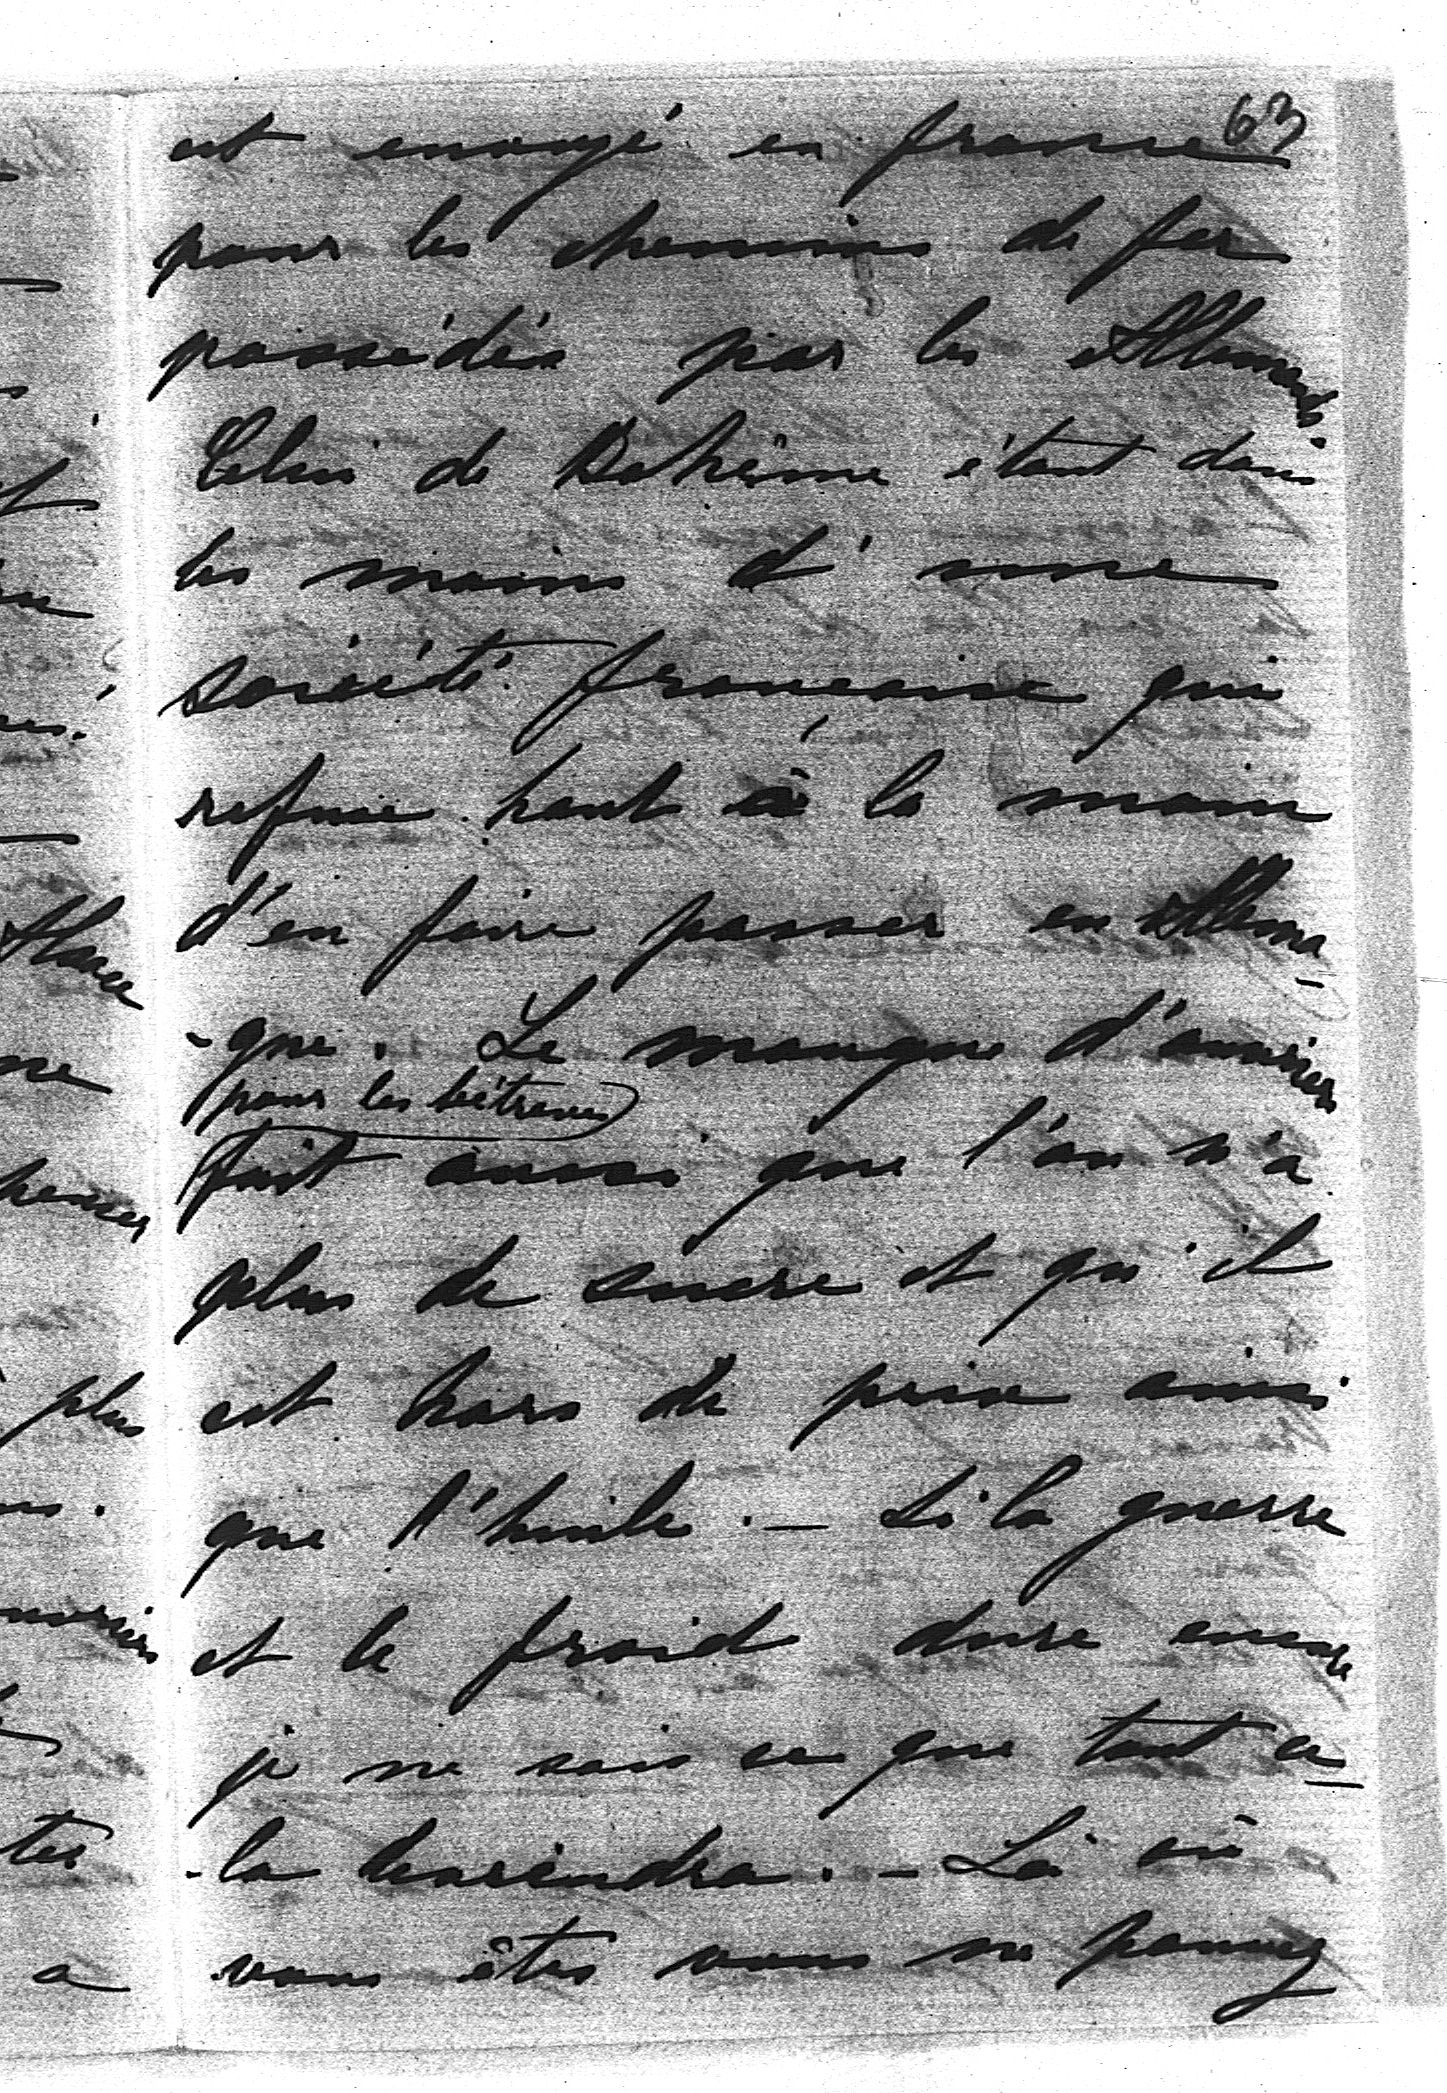 63
est envoyé en france
pour les chemins de fer
possédés par les Allemands.
Celui de Bohême étant dans
les mains d'une
société française qui
refuse haut à la main
d'en faire passer en Allema-
-gne. Le manque d'ouvriers
pour les bétraves
fait aussi que l'on n'a
plus de sucre et qu'il
est hors de prix ainsi
que l'huile. — Si la guerre
et le froid dure encore
je ne sais ce que tout ce-
-la deviendra. — Là où
vous êtes vous ne pouvez